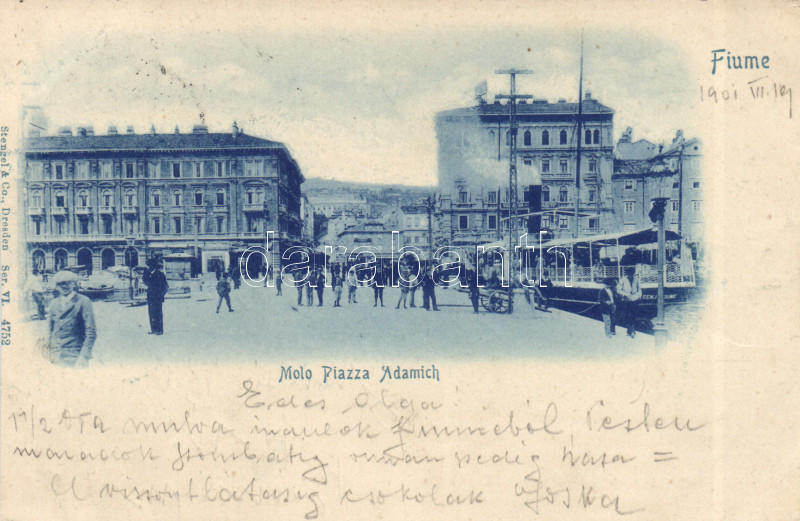 Fiume
1901 VII.19
Stengel & Co., Dresden Ser. VI. 4752
darabanth.com
Molo Piazza Adamich
Edes Olga
1 1/2 óra mulva indulok Fiuméból, Pesten
maradok szombatig azután pedig haza =
A viszontlátásig csokolak Joska